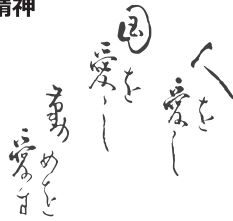 精神
人を愛し
国を愛し
勤めを愛す